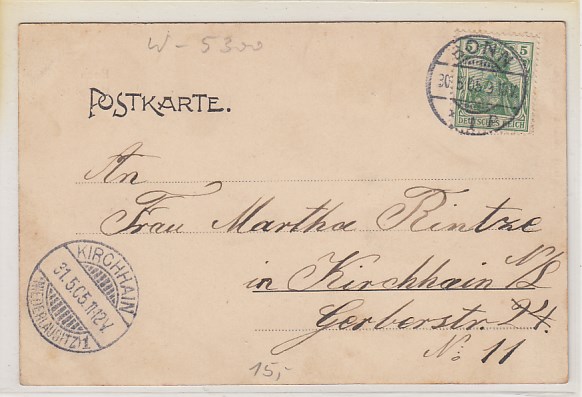 W - 5300
BONN
30.5.05.
5
DEUTSCHES REICH
POSTKARTE.
An
Frau Martha Rintze
in Kirchhain N/L
Gerberstr. 24.
No: 11
KIRCHHAIN
31.5.05.11-12V.
(NIEDERLAUSITZ) 1
15,-